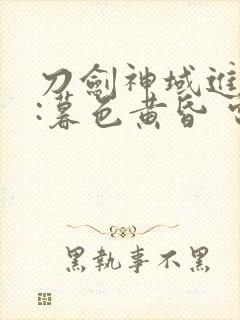 刀劍神域進
:暮色黄昏
黑執事不黑